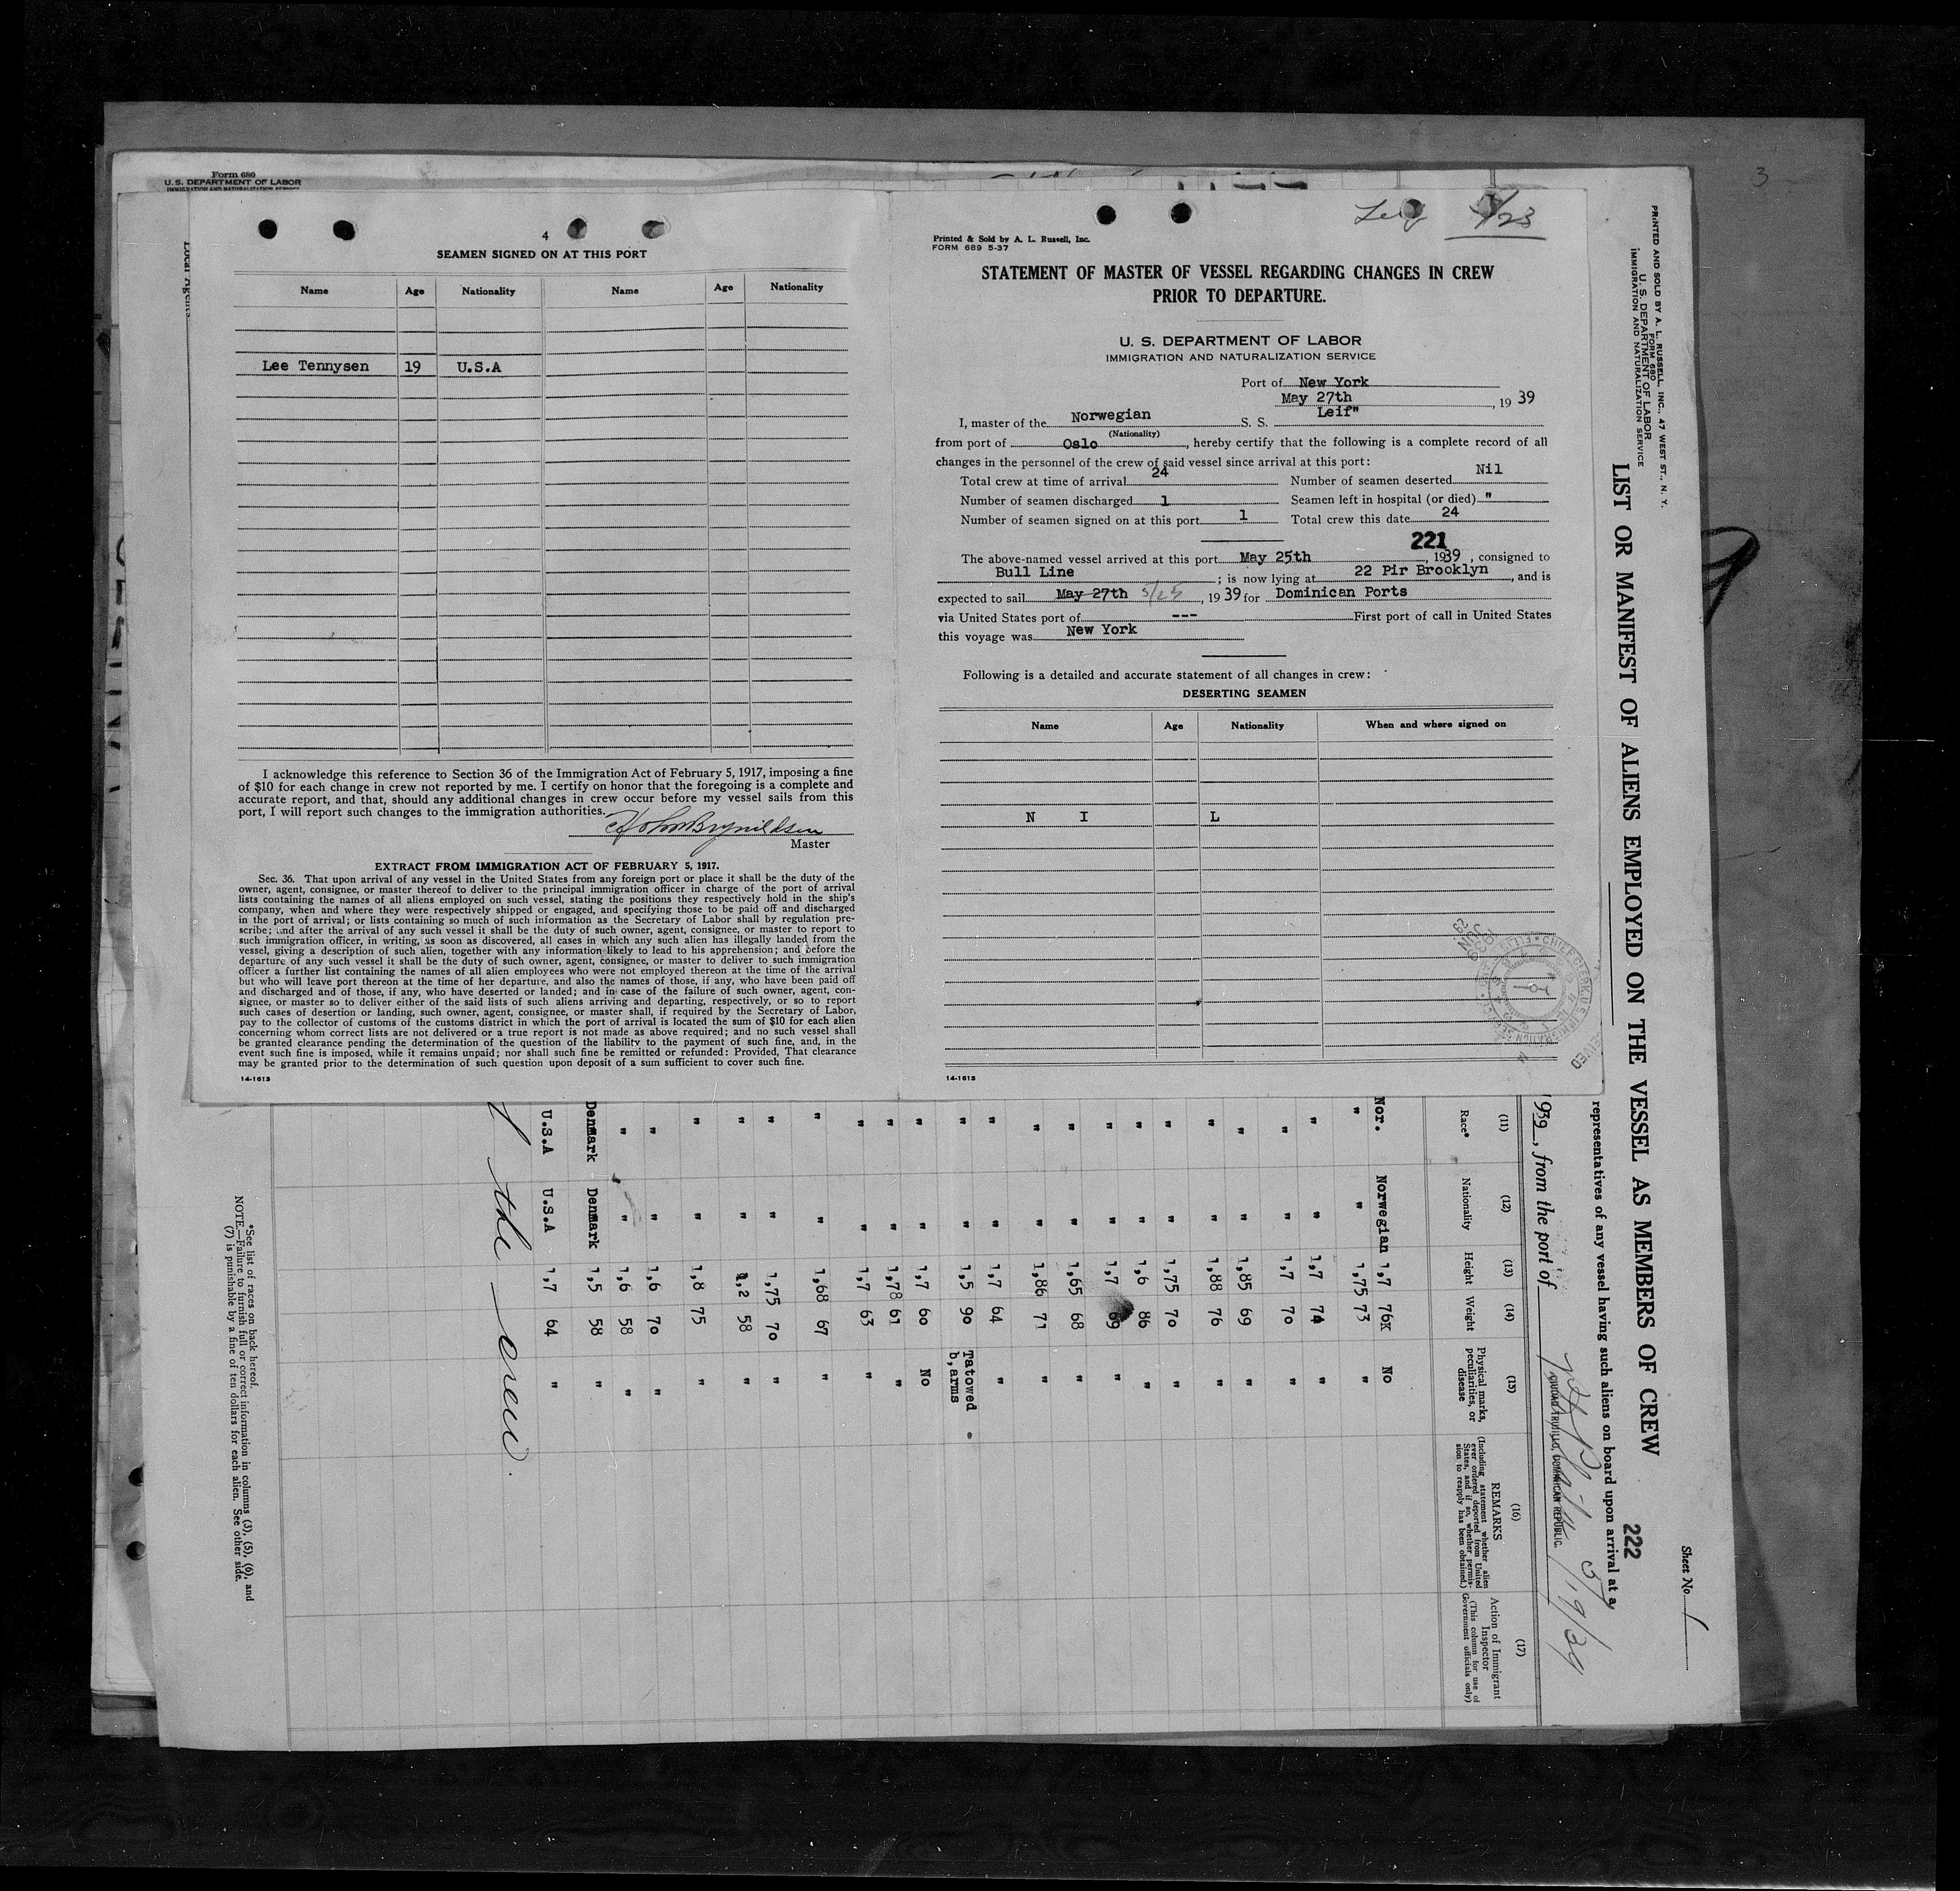 Form 680
U. S. DEPARTMENT OF LABOR
IMMIGRATION AND NATURALIZATION SERVICE
Local Agents
4
SEAMEN SIGNED ON AT THIS PORT
Name Age Nationality Name Age Nationality
Lee Tennysen 19 U.S.A
I acknowledge this reference to Section 36 of the Immigration Act of February 5, 1917, imposing a fine
of $10 for each change in crew not reported by me. I certify on honor that the foregoing is a complete and
accurate report, and that, should any additional changes in crew occur before my vessel sails from this
port, I will report such changes to the immigration authorities.
Master
EXTRACT FROM IMMIGRATION ACT OF FEBRUARY 5, 1917.
Sec. 36. That upon arrival of any vessel in the United States from any foreign port or place it shall be the duty of the
owner, agent, consignee, or master thereof to deliver to the principal immigration officer in charge of the port of arrival
lists containing the names of all aliens employed on such vessel, stating the positions they respectively hold in the ship's
company, when and where they were respectively shipped or engaged, and specifying those to be paid off and discharged
in the port of arrival; or lists containing so much of such information as the Secretary of Labor shall by regulation pre-
scribe; and after the arrival of any such vessel it shall be the duty of such owner, agent, consignee, or master to report to
such immigration officer, in writing, as soon as discovered, all cases in which any such alien has illegally landed from the
vessel, giving a description of such alien, together with any information likely to lead to his apprehension; and before the
departure of any such vessel it shall be the duty of such owner, agent, consignee, or master to deliver to such immigration
officer a further list containing the names of all alien employees who were not employed thereon at the time of the arrival
but who will leave port thereon at the time of her departure, and also the names of those, if any, who have been paid off
and discharged and of those, if any, who have deserted or landed; and in case of the failure of such owner, agent, con-
signee, or master so to deliver either of the said lists of such aliens arriving and departing, respectively, or so to report
such cases of desertion or landing, such owner, agent, consignee, or master shall, if required by the Secretary of Labor,
pay to the collector of customs of the customs district in which the port of arrival is located the sum of $10 for each alien
concerning whom correct lists are not delivered or a true report is not made as above required; and no such vessel shall
be granted clearance pending the determination of the question of the liability to the payment of such fine, and, in the
event such fine is imposed, while it remains unpaid; nor shall such fine be remitted or refunded: Provided, That clearance
may be granted prior to the determination of such question upon deposit of a sum sufficient to cover such fine.
14-1613
Printed & Sold by A. L. Russell, Inc.
FORM 689 5-37
STATEMENT OF MASTER OF VESSEL REGARDING CHANGES IN CREW
PRIOR TO DEPARTURE.
U. S. DEPARTMENT OF LABOR
IMMIGRATION AND NATURALIZATION SERVICE
Port of New York
May 27th, 19 39
I, master of the Norwegian S. S. Leif"
(Nationality)
from port of Oslo, hereby certify that the following is a complete record of all
changes in the personnel of the crew of said vessel since arrival at this port:
Total crew at time of arrival 24 Number of seamen deserted Nil
Number of seamen discharged 1 Seamen left in hospital (or died) "
Number of seamen signed on at this port 1 Total crew this date 24
221
The above-named vessel arrived at this port May 25th, 1939, consigned to
Bull Line; is now lying at 22 Pir Brooklyn, and is
expected to sail May 27th, 19 39 for Dominican Ports
via United States port of --- First port of call in United States
this voyage was New York
Following is a detailed and accurate statement of all changes in crew:
DESERTING SEAMEN
Name Age Nationality When and where signed on
N I L
14-1613
PRINTED AND SOLD BY A. L. RUSSELL, INC., 47 WEST ST., N. Y.
FORM 680
U. S. DEPARTMENT OF LABOR
IMMIGRATION AND NATURALIZATION SERVICE
Sheet No. 1
LIST OR MANIFEST OF ALIENS EMPLOYED ON THE VESSEL AS MEMBERS OF CREW
222
representatives of any vessel having such aliens on board upon arrival at a
1939, from the port of
CIUDAD TRUJILLO, DOMINICAN REPUBLIC.
(11) (12) (13) (14) (15) (16) (17)
Race* Nationality Height Weight Physical marks, peculiarities, or disease REMARKS (Including statement whether alien ever ordered deported from United States, and if so, whether permission to reapply has been obtained.) Action of Immigrant Inspector (This column for use of Government officials only)
Nor. Norwegian 1,7 76K No
" " 1,75 73 "
" " 1,7 74 "
" " 1,7 70 "
" " 1,85 69 "
" " 1,88 76 "
" " 1,75 70 "
" " 1,6 86 "
" " 1,7 69 "
" " 1,65 68 "
" " 1,86 71 "
" " 1,7 64 "
" " 1,5 90 Tatowed b,arms
" " 1,7 60 No
" " 1,78 61 "
" " 1,7 63 "
" " 1,68 67 "
" " 1,75 70 "
" " 1,2 58 "
" " 1,8 75 "
" " 1,6 70 "
" " 1,6 58 "
Denmark Denmark 1,5 58 "
U.S.A U.S.A 1,7 64 "
the crew.
*See list of races on back hereof.
NOTE.—Failure to furnish full or correct information in columns (3), (5), (6), and
(7) is punishable by a fine of ten dollars for each alien. See other side.